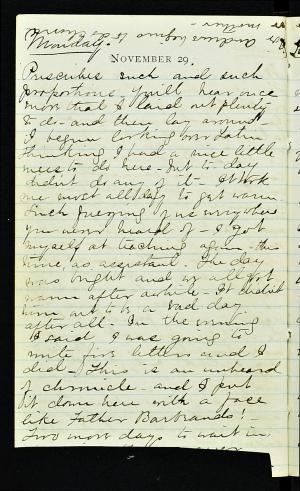 Monday.
NOVEMBER 29.
Prescribes such and such
proportions. You'll hear once
more that I laid out plenty
to do - and then lay around -
I began looking over Latin
thinking I had a nice little
mess to do here - but to-day
didn't do any of it - It took
me most all day to get warm.
Such freezing of us everywhere
you never heard of - I got
myself at teaching again - this
time, as assistant. The day
was bright and we all got
warm after awhile - It didn't
turn out to be a bad day
after all. In the morning
I said I was going to
write five letters and I
did - This is an unheard
of chronicle - and I put
it down here with a face
like Father Barbrands! -
Two more days to wait in